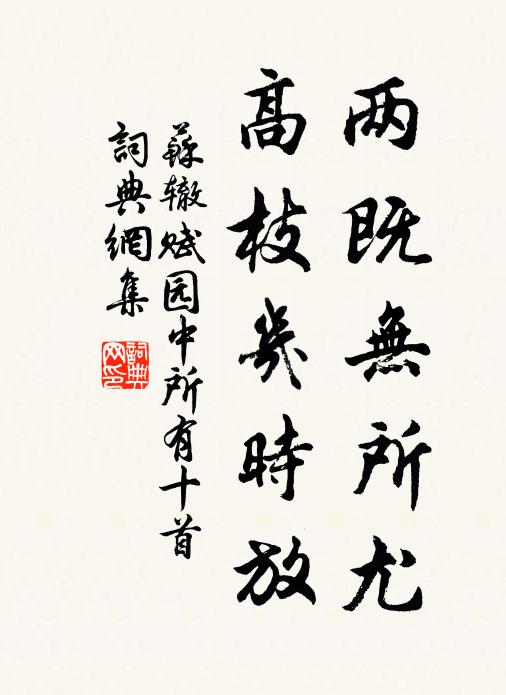 两既無所尤
高枝幾時放
蘇辙赋园中所有十首
詞典網集
詞典网印